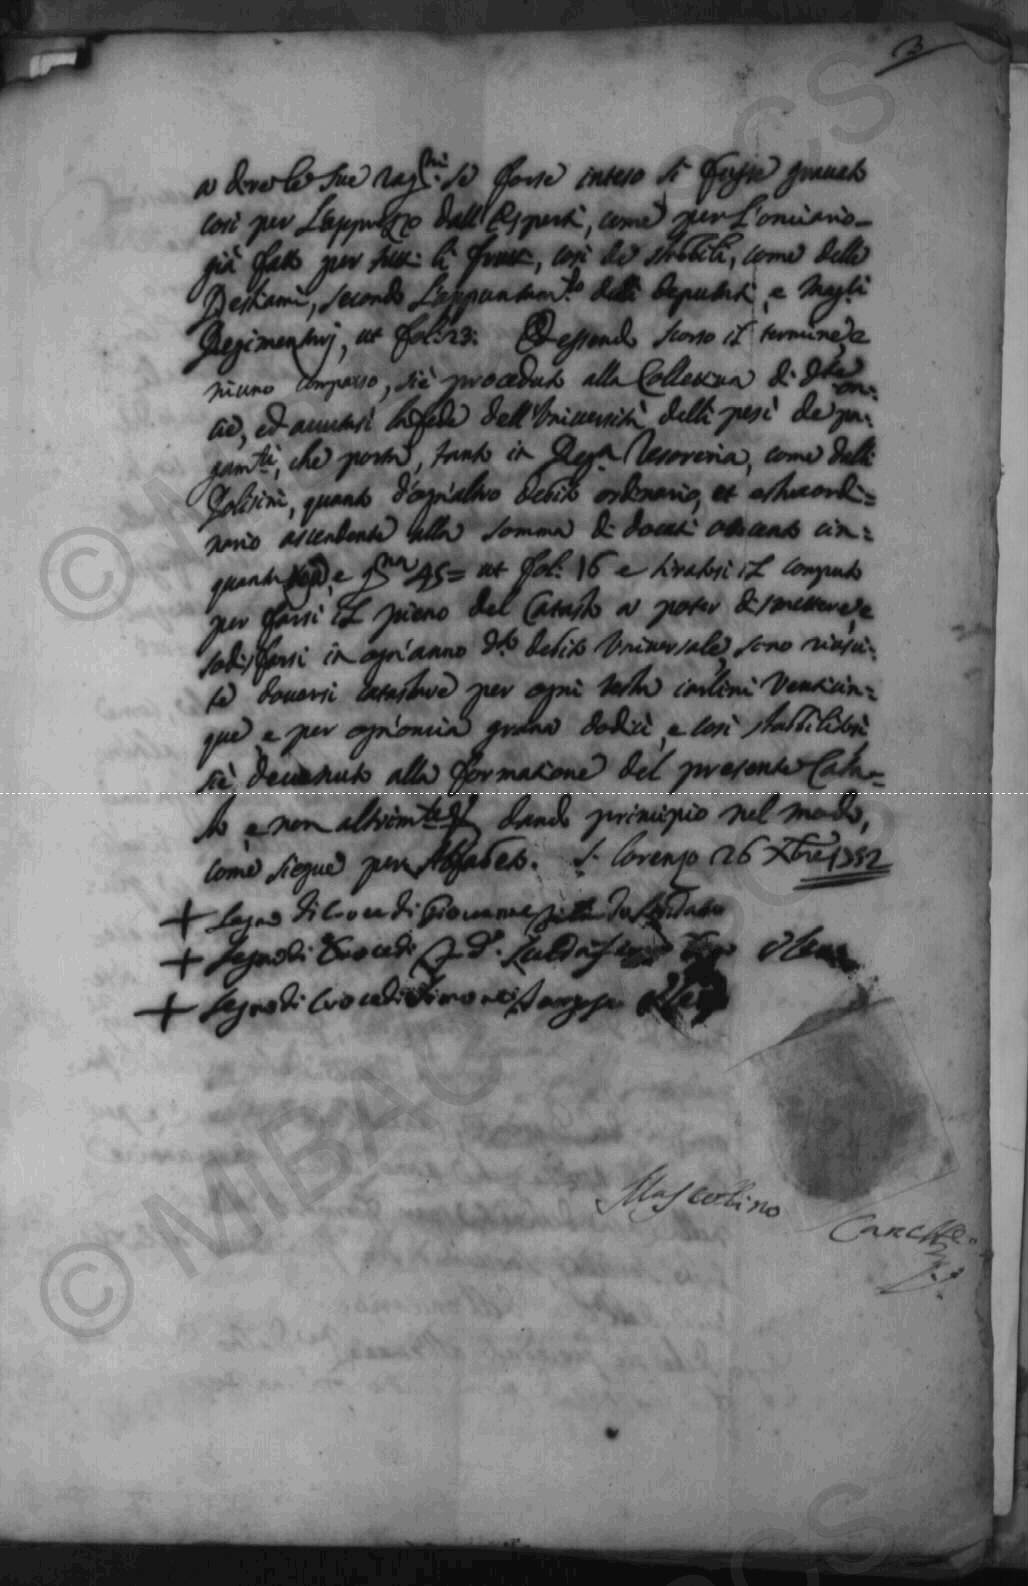 3
a dire le sue rag.ni se forse inteso si fusse gravato
così per l'apprezzo dall'Esperti, come per l'onciario
già fatto per tutti li frutti, così de stabili, come delle
Bestiami, secondo l'appuntam.to delli Deputati, e Mag.ci
Regimentarij, ut fol: 23: Ed essendo scorso il termine, e
niuno comparso, si è proceduto alla Collettiva di d.te on:
cie, ed avutasi la fede dell'Università delli pesi de pa:
gam.ti, che porta, tanto in Reg.a Tesoreria, come delli
Fol. quanto d'ogn'altro debito ordinario, et estraordi=
nario ascendente alla somma di docati ottocento cin=
quanta e g.na 45= ut fol: 16 e tiratosi il computo
per farsi il pieno del Catasto a poter dismettere, e
sodisfarsi in ogn'anno d.to debito Universale, sono riusci:
te doversi catastare per ogni testa carlini venticin=
que, e per ogn'oncia grana dodici, e così stabilitosi
si è devenuto alla formatione del presente Cata=
sto, e non altrim.te dando principio nel modo,
come siegue per Alfabeto. S. Lorenzo 26 Xbre 1752
+ Segno di Croce di Giovanne
+ Segno di Croce di
+ Segno di Croce di Simone
Mascollino
© MIBAC
© MIBAC